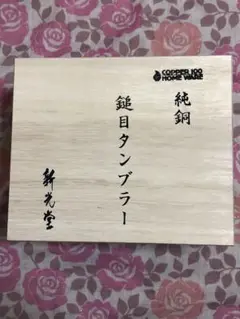 COPPER 100
HOME WARE
純銅
鎚目タンブラー
新光堂